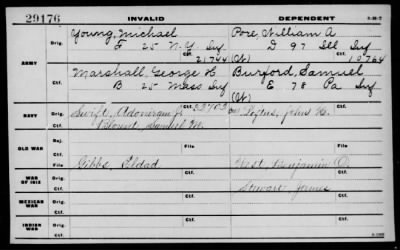 29176
INVALID
DEPENDENT
3-16-7
ARMY
Orig.
Young, Michael
F 25 N.Y. Inf
Pore, William A
D 97 Ill Inf
Ctf.
21744 (Ct)
19764
Marshall, George H
B 25 Mass Inf
Burford, Samuel
E 78 Pa Inf
(Ct)
NAVY
Orig.
Swift, Adoniram J.
Loftus, John H.
Ctf.
Blount, Samuel M.
OLD WAR
Raj.
File
WAR OF 1812
Orig.
Gibbs, Eldad
West, Benjamin O.
Ctf.
Stewart, James
MEXICAN WAR
Orig.
Ctf.
INDIAN WAR
Orig.
Ctf.